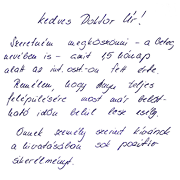 Kedves Doktor Úr!
Szeretném megköszönni - a beteg
nevében is - amit 1,5 hónap
alatt az int. oszt-on tett érte.
Remélem, hogy anyu teljes
felépülésére most már belát-
ható időn belül lesz esély.
Önnek személy szerint kívánok
a hivatásában sok pozitív
sikerélményt.